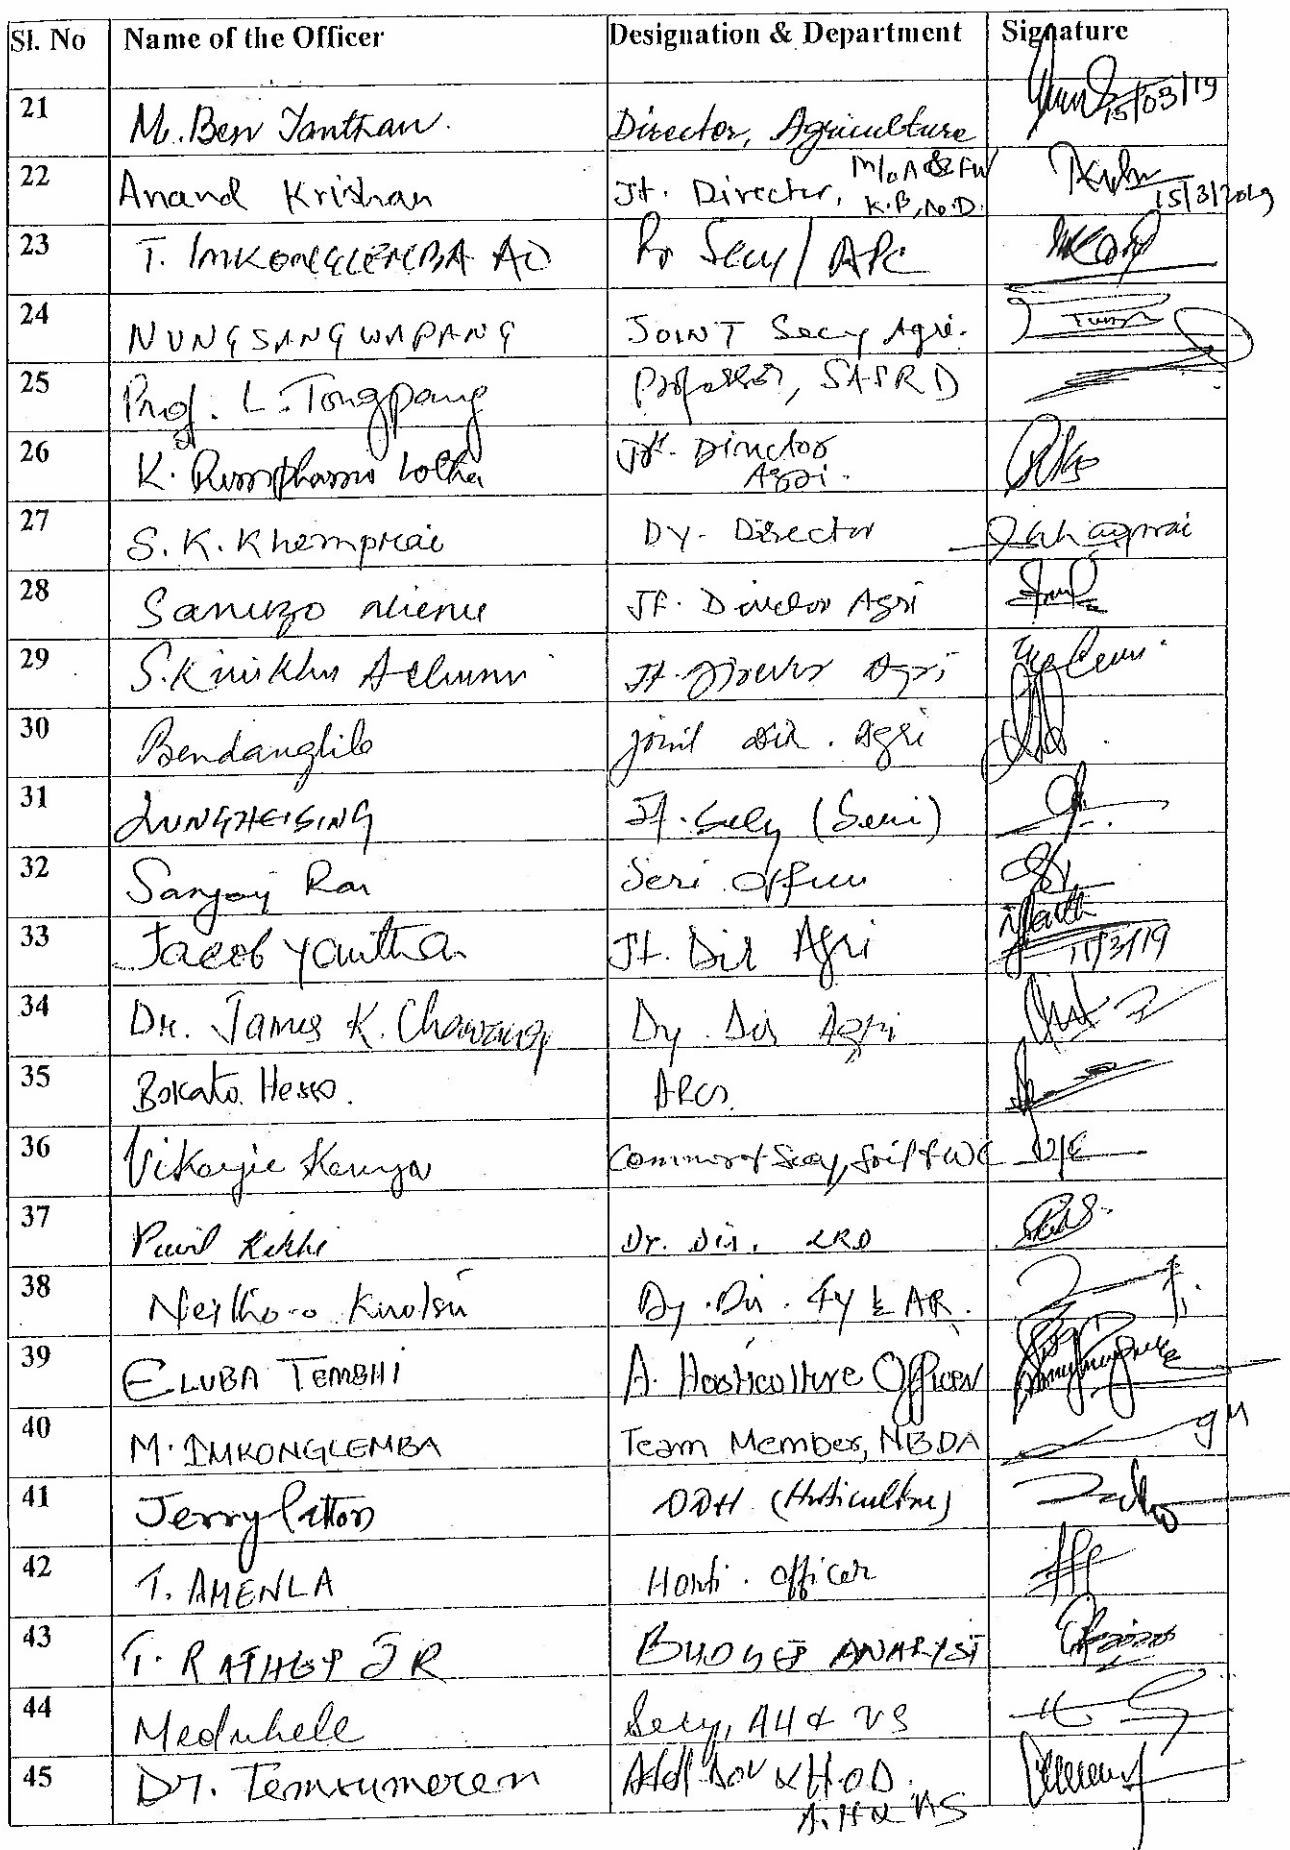 Sl. No Name of the Officer Designation & Department Signature
21 M. Ben Yanthan. Director, Agriculture 15/03/19
22 Anand Krishnan Jt. Director, M/o A & FW K.B, N.D. 15/3/2019
23 T. IMKONGLEMBA AO Pr Secy/ APC
24 NUNGSANGWAPANG JOINT Secy Agri.
25 Prof. L. Tongpang Professor, SASRD
26 K. Lotha Jt. Director Agri.
27 S. K. Khemprai Dy. Director
28 Sanuzo Nienu Jt. Director Agri
29 S. Kinikhu Achumi Jt. Director Agri
30 Bendanglila Joint Dir. Agri
31 LUNGHEISING Jt. Secy (Seri)
32 Sanjoy Rai Seri Officer
33 Jacob Yanthan Jt. Dir Agri 15/3/19
34 Dr. James K. Chawang Dy. Dir Agri
35 Bokato Hesso. ARCS.
36 Vikeyie Kenya Commr & Secy, Soil & WC
37 Kikhi Dy. Dir. LRD
38 Dy. Dir. Fy & AR.
39 ELUBA TEMBHI A. Horticulture Officer
40 M. IMKONGLEMBA Team Member, NBDA
41 Jerry Patton DDH (Horticulture)
42 T. AMENLA Horti. Officer
43 T. JR BUDGET ANALYST
44 Meduhele Secy, AH & VS
45 Dr. Temsumeren Addl Dir & H.O.D. A.H & VS